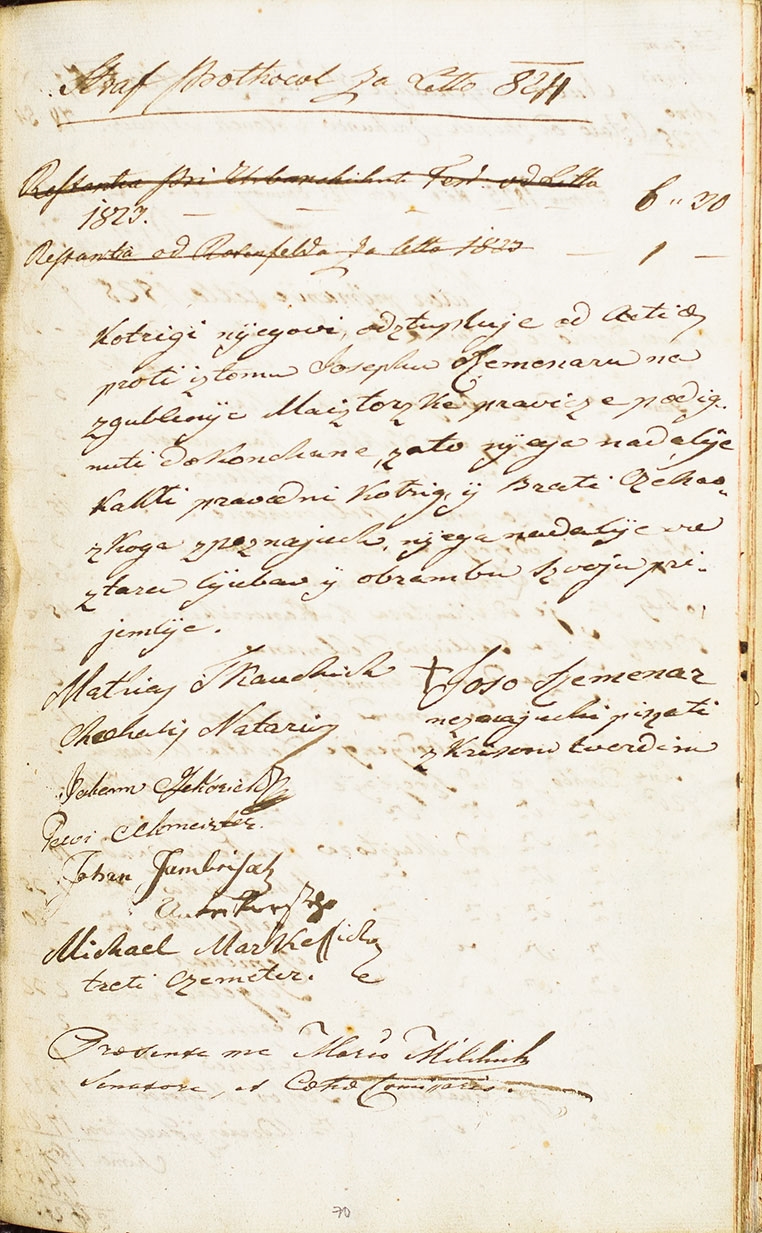 Straf Prothocol Za Letto 824
Restantia pri Urbanchichu Ferd. od Letta
1823. — — — — — 6 " 30
Restantia od Rosenfelda Za Letto 1823 — 1 —
Kotrigi nyegovi, odztupluje od Actiæ
proti iztomu Josephu Szemenaru na
zgublenye Maiztorzke pravicze podig-
nuti dokonchane, zato nyega nadalye
kakti pravedni Kotrig, y Brati Czehov-
zkoga zpoznajuch, nyega nadalye vu
ztaru lyubav y obrambu szvoju pri-
jemlye.
Mathias Tkauchich
Chehalis Notarius
+ Joso Szemenar
neznajuchi pizati
z Krisom tverdim
Johann
Johan Jambrisak
Michael Markessich
treti Czemeter.
Præsente me Mario Milchich
Senatore, et Cæhæ Commissario.
70